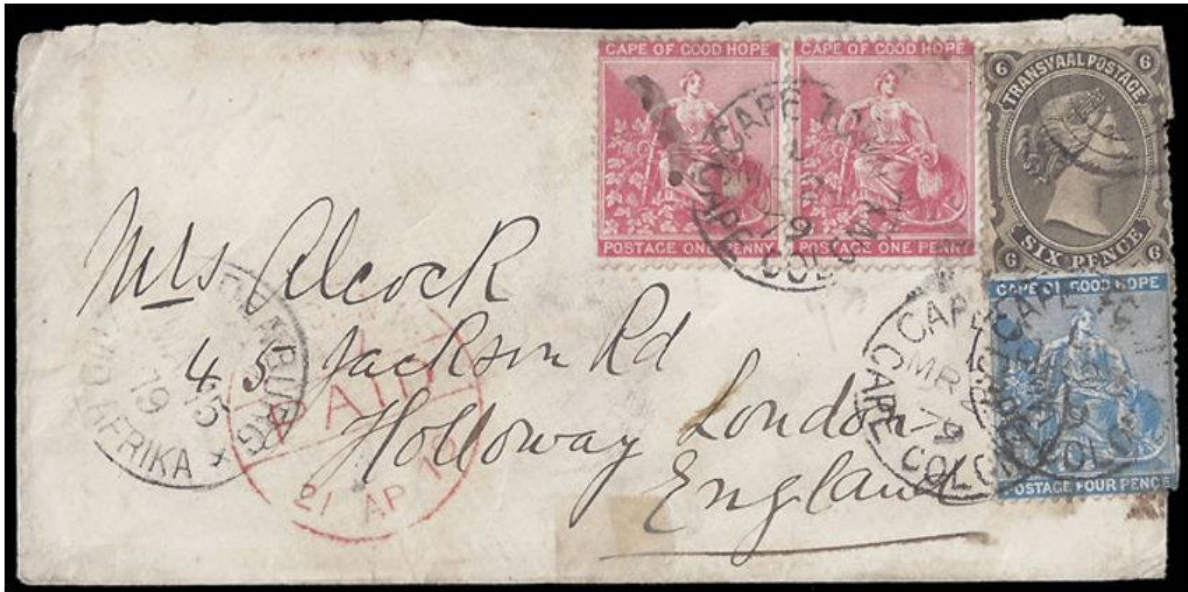 CAPE OF GOOD HOPE
POSTAGE ONE PENNY
CAPE OF GOOD HOPE
POSTAGE ONE PENNY
6 TRANSVAAL POSTAGE 6
6 SIX PENCE 6
CAPE OF GOOD HOPE
POSTAGE FOUR PENCE
CAPE TOWN
79
CAPE COLONY
CAPE
MR
79
CAPE COLONY
Mrs Alcock
45 Jackson Rd
Holloway London
England
15
79
AFRIKA
PAID
21 AP